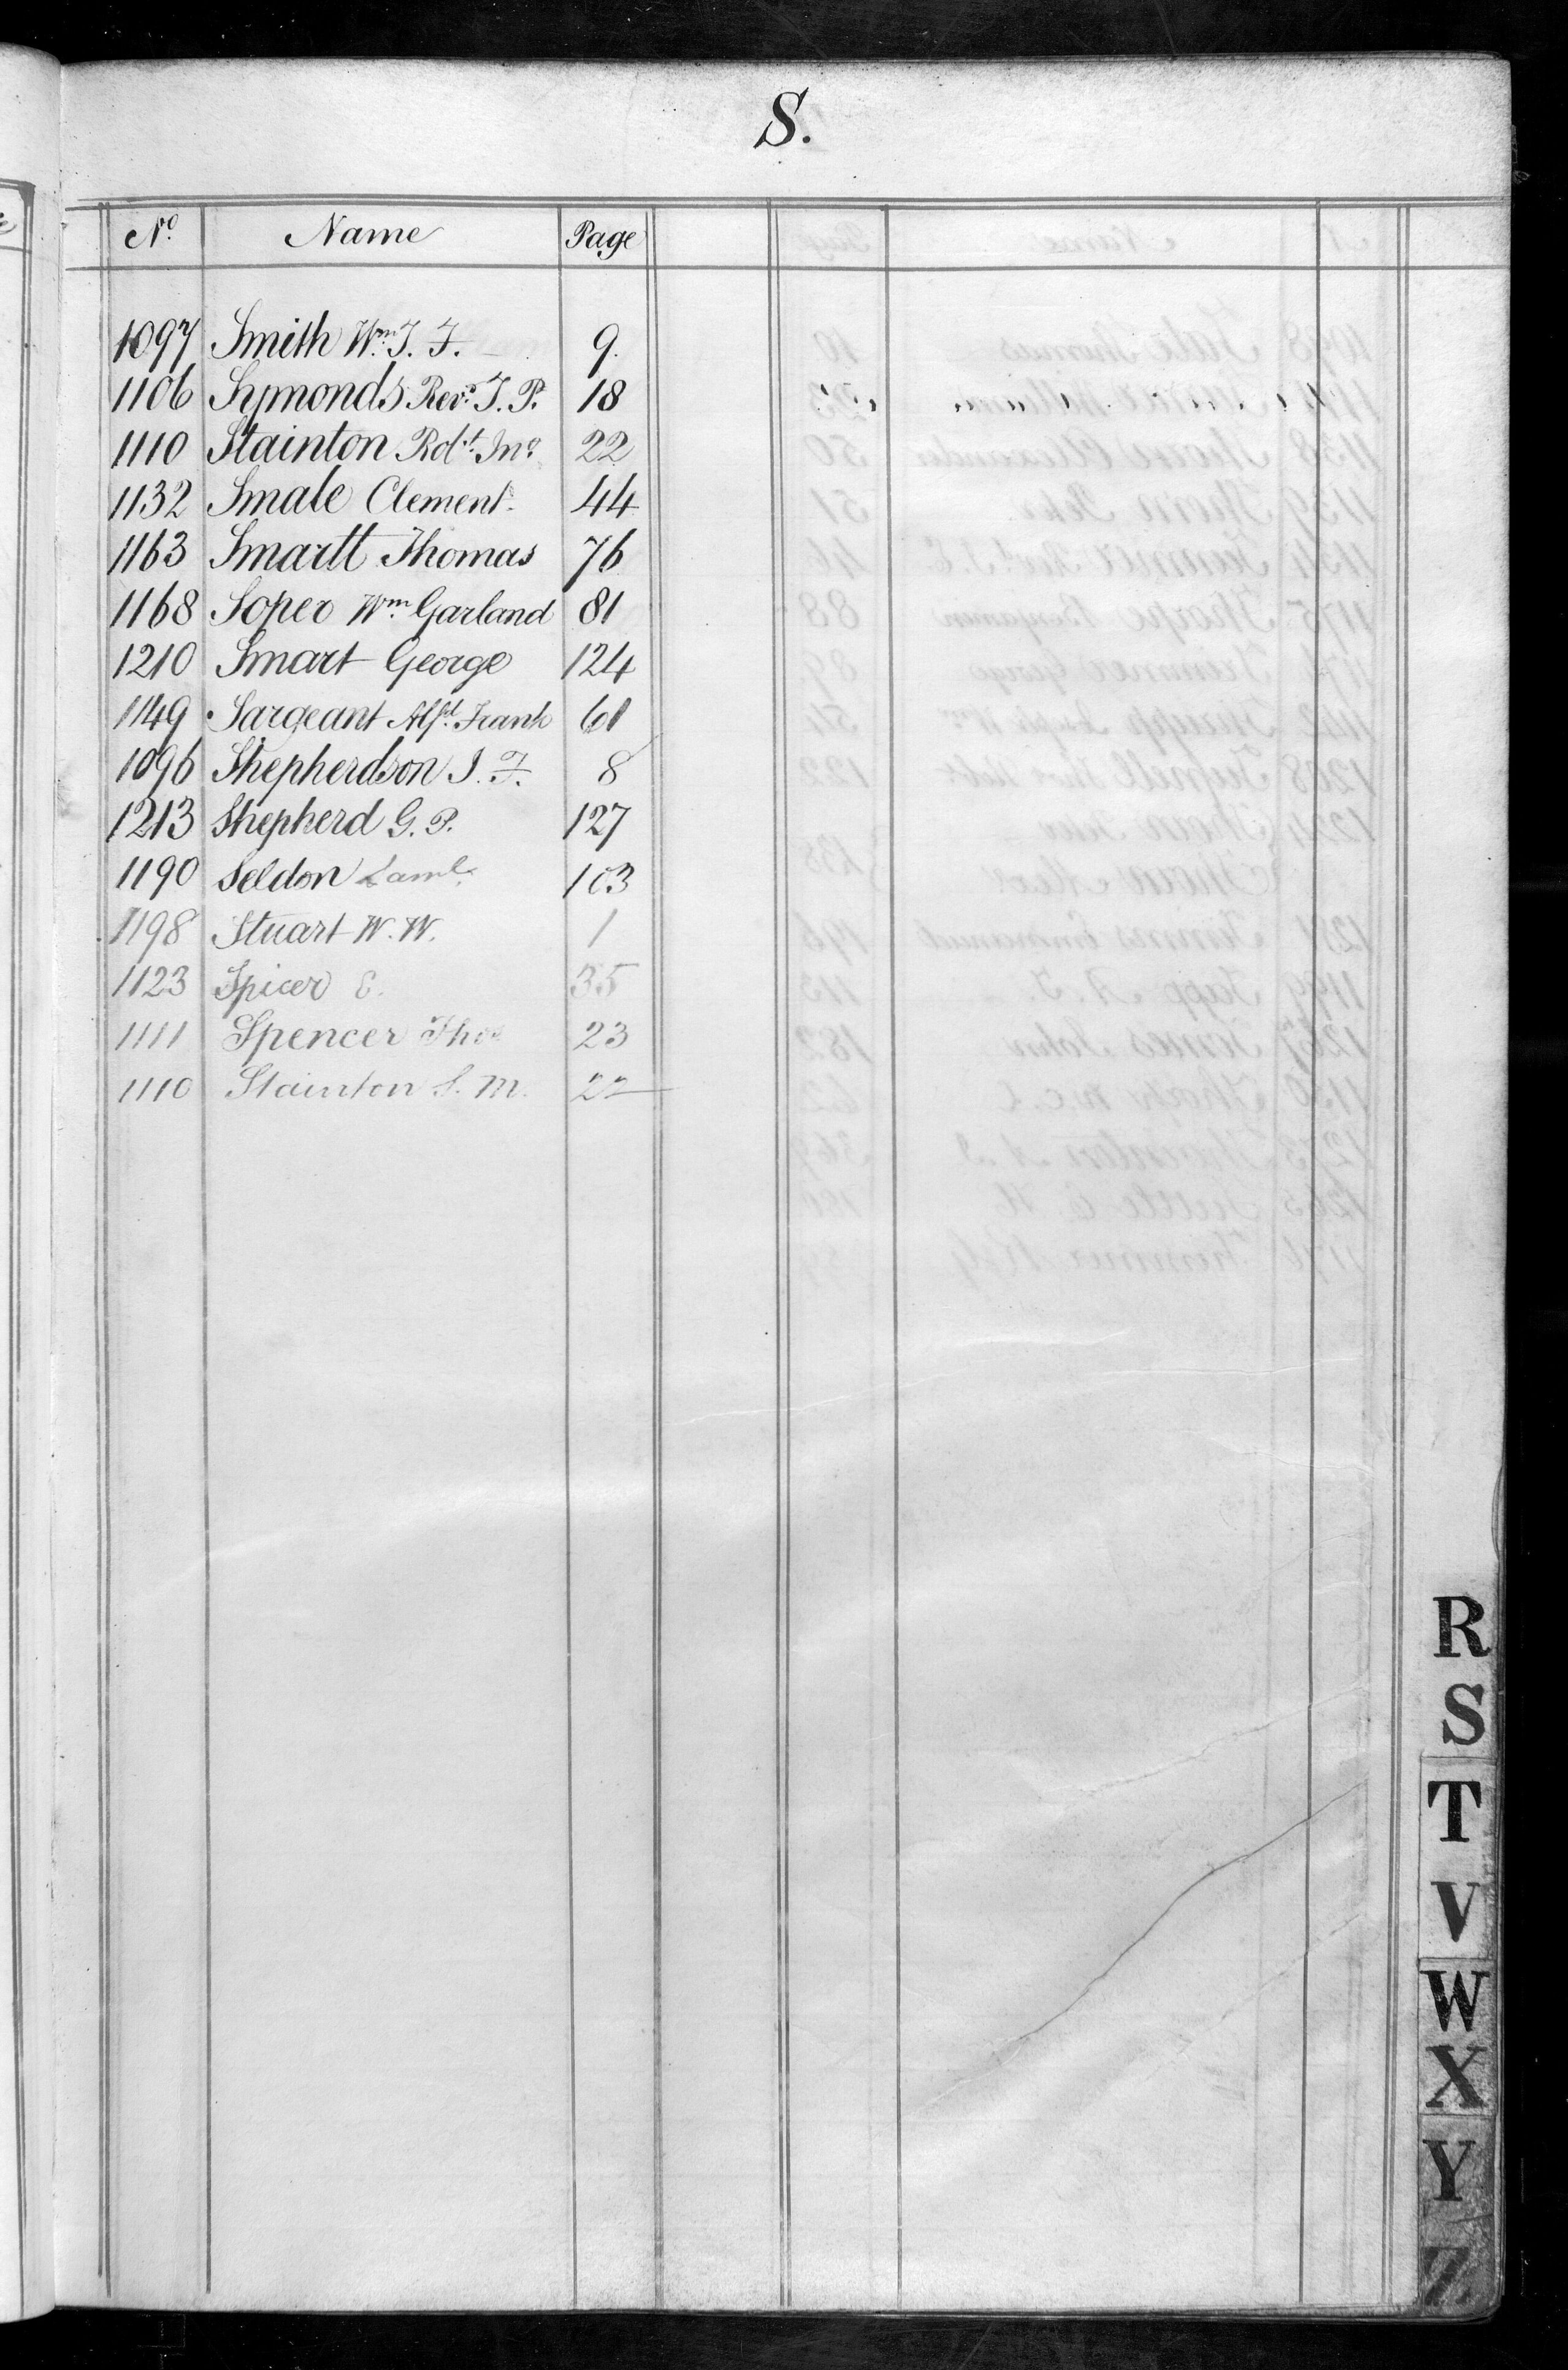 S.
No. Name Page
1097 Smith Wm. J. F. 9.
1106 Symonds Revd. J. P. 18
1110 Stainton Robt. Jno. 22
1132 Smale Clement. 44
1163 Smartt Thomas 76
1168 Soper Wm. Garland 81
1210 Smart George 124
1149 Sargeant Alfd. Frank 61
1096 Shepherdson J. F. 8
1213 Shepherd G. P. 127
1190 Seldon Saml. 103
1198 Stuart W. W. 1
1123 Spicer E. 35
1111 Spencer Thos 23
1110 Stainton S. M. 22
R
S
T
V
W
X
Y
Z